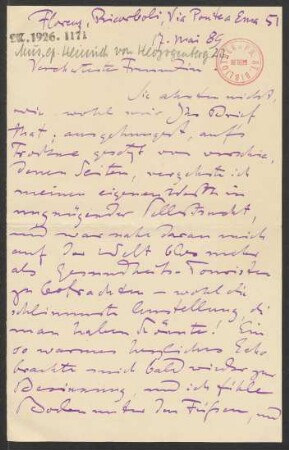 Florenz, Ricorboli, Via Ponte a Ema 51
17. Mai 89
EX. 1926. 1171
Mus. ep. Heinrich von Herzogenberg 22
Verehrteste Freundin
Sie ahnten nicht,
wie wohl mir Ihr Brief
that; ausgehungert, aufs
Trockne gesetzt von verschie
denen Seiten, verzehrte ich
meinen eigenen Werth in
ungnügender Selbstsucht,
und war nahe daran mich
auf der Welt blos mehr
als Gesundheits-Touristen
zu betrachten – wohl die
schlimmste Anstellung, di
man haben könnte! Ein
so warmes herzliches Echo
brachte mich bald wieder zur
Besinnung, und ich fühle
Boden unter den Füssen, und